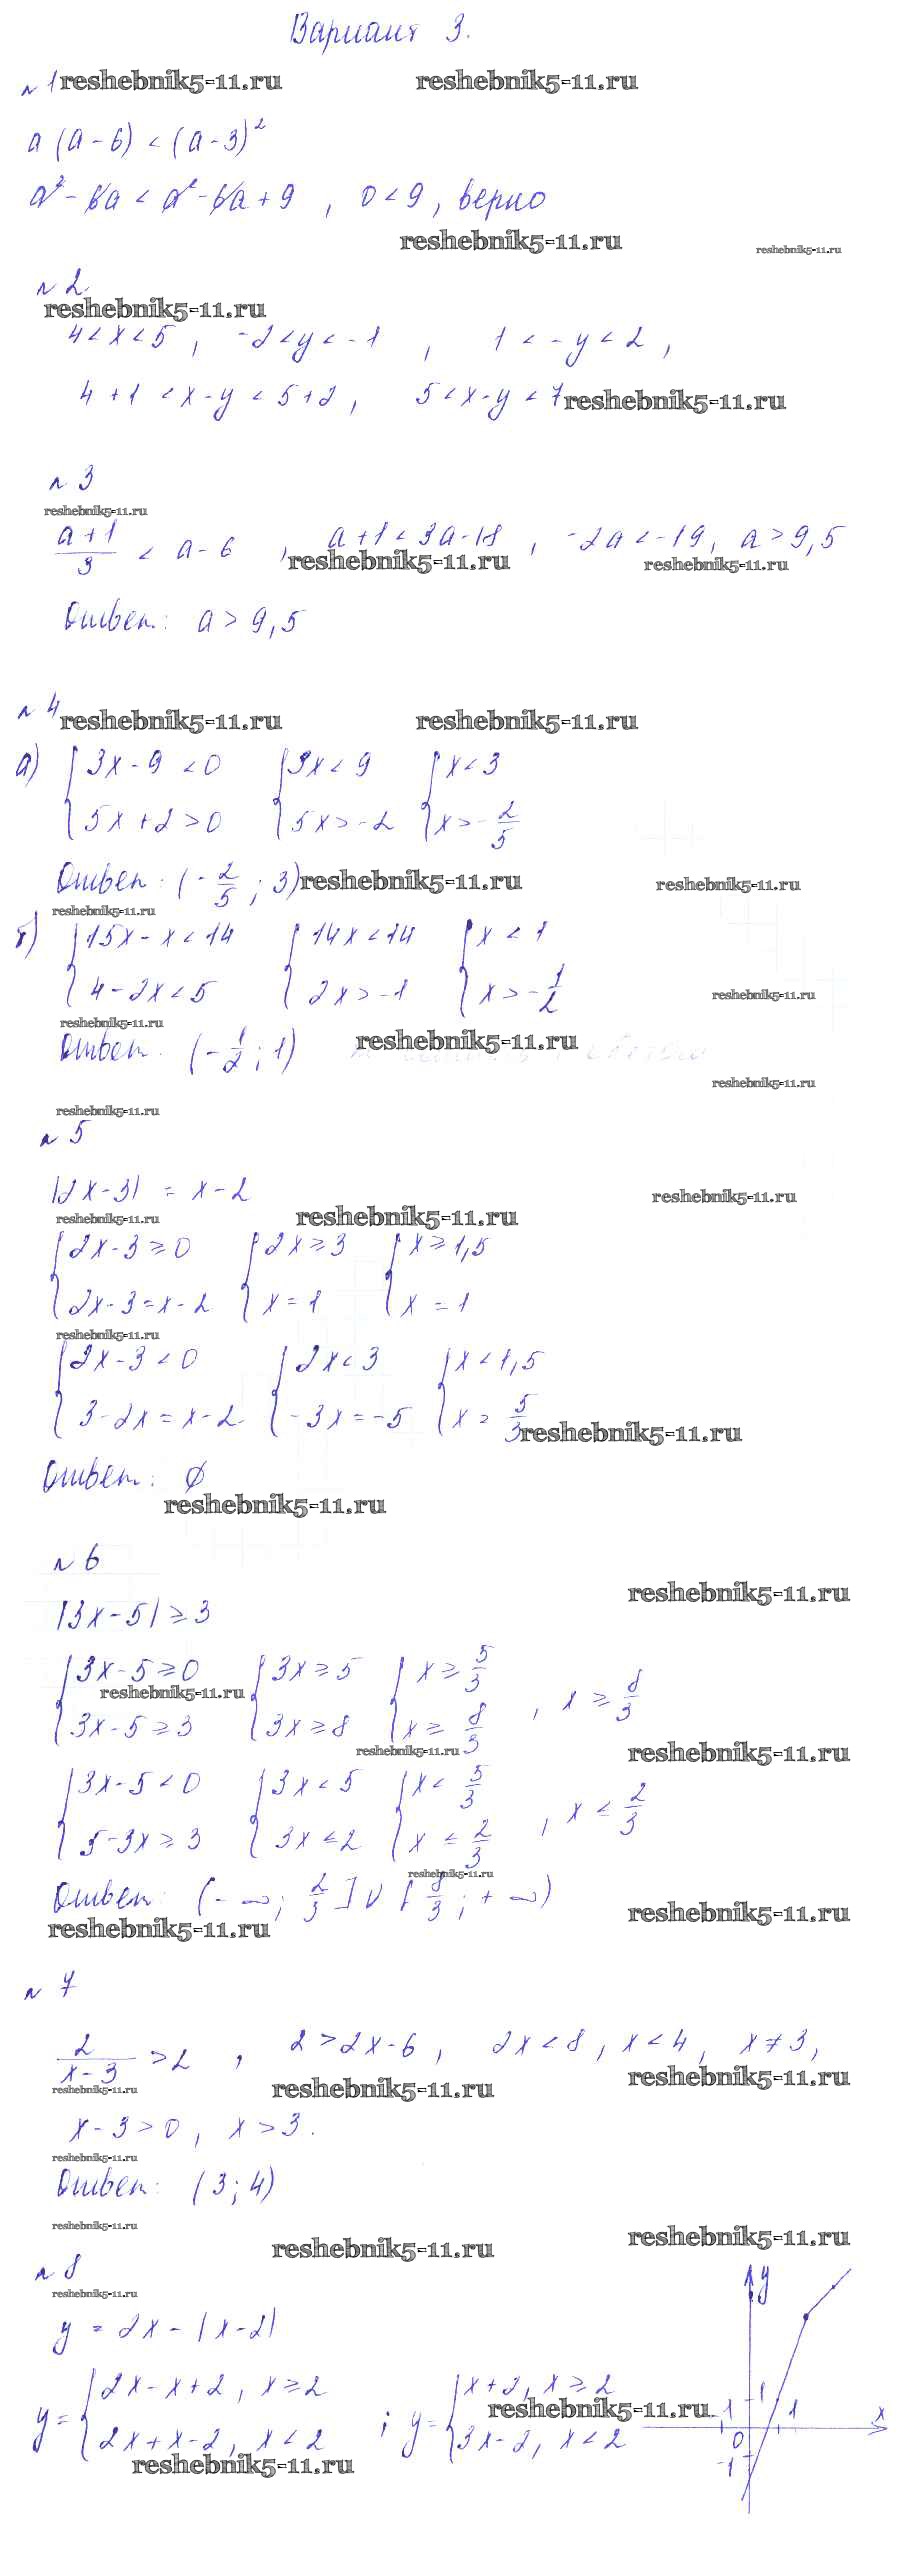 Вариант 3.
№1 reshebnik5-11.ru reshebnik5-11.ru
a(a-6) < (a-3)²
a² - 6a < a² - 6a + 9 , 0 < 9, верно
reshebnik5-11.ru reshebnik5-11.ru
№2.
reshebnik5-11.ru
4 < x < 5 , -2 < y < -1 , 1 < -y < 2 ,
4+1 < x-y < 5+2 , 5 < x-y < 7 reshebnik5-11.ru
№3
reshebnik5-11.ru
(a+1)/3 < a-6 , a+1 < 3a-18 , -2a < -19, a > 9,5
reshebnik5-11.ru reshebnik5-11.ru
Ответ: a > 9,5
№4
reshebnik5-11.ru reshebnik5-11.ru
а) { 3x-9 < 0 { 3x < 9 { x < 3
5x+2 > 0 5x > -2 x > -2/5
Ответ: (-2/5 ; 3) reshebnik5-11.ru reshebnik5-11.ru
reshebnik5-11.ru
б) { 15x-x < 14 { 14x < 14 { x < 1
4-2x < 5 2x > -1 x > -1/2
reshebnik5-11.ru
reshebnik5-11.ru
Ответ: (-1/2 ; 1) reshebnik5-11.ru
reshebnik5-11.ru
reshebnik5-11.ru
№5
|2x-3| = x-2
reshebnik5-11.ru
reshebnik5-11.ru reshebnik5-11.ru
{ 2x-3 ≥ 0 { 2x ≥ 3 { x ≥ 1,5
2x-3 = x-2 x = 1 x = 1
reshebnik5-11.ru
{ 2x-3 < 0 { 2x < 3 { x < 1,5
3-2x = x-2 -3x = -5 x = 5/3
reshebnik5-11.ru
Ответ: ∅
reshebnik5-11.ru
№6
reshebnik5-11.ru
|3x-5| ≥ 3
{ 3x-5 ≥ 0 { 3x ≥ 5 { x ≥ 5/3 , x ≥ 8/3
reshebnik5-11.ru
3x-5 ≥ 3 3x ≥ 8 x ≥ 8/3
reshebnik5-11.ru reshebnik5-11.ru
{ 3x-5 < 0 { 3x < 5 { x < 5/3 , x ≤ 2/3
5-3x ≥ 3 3x ≤ 2 x ≤ 2/3
reshebnik5-11.ru
Ответ: (-∞; 2/3] ∪ [8/3 ; +∞)
reshebnik5-11.ru reshebnik5-11.ru
№7
2/(x-3) > 2 , 2 > 2x-6 , 2x < 8, x < 4, x ≠ 3,
reshebnik5-11.ru reshebnik5-11.ru reshebnik5-11.ru
x-3 > 0 , x > 3.
reshebnik5-11.ru
Ответ: (3; 4)
reshebnik5-11.ru reshebnik5-11.ru reshebnik5-11.ru
№8
reshebnik5-11.ru
y = 2x - |x-2|
y = { 2x-x+2, x ≥ 2 ; y = { x+2, x ≥ 2
2x+x-2, x < 2 3x-2, x < 2
reshebnik5-11.ru
reshebnik5-11.ru
y
1
-1
1
x
0
-1